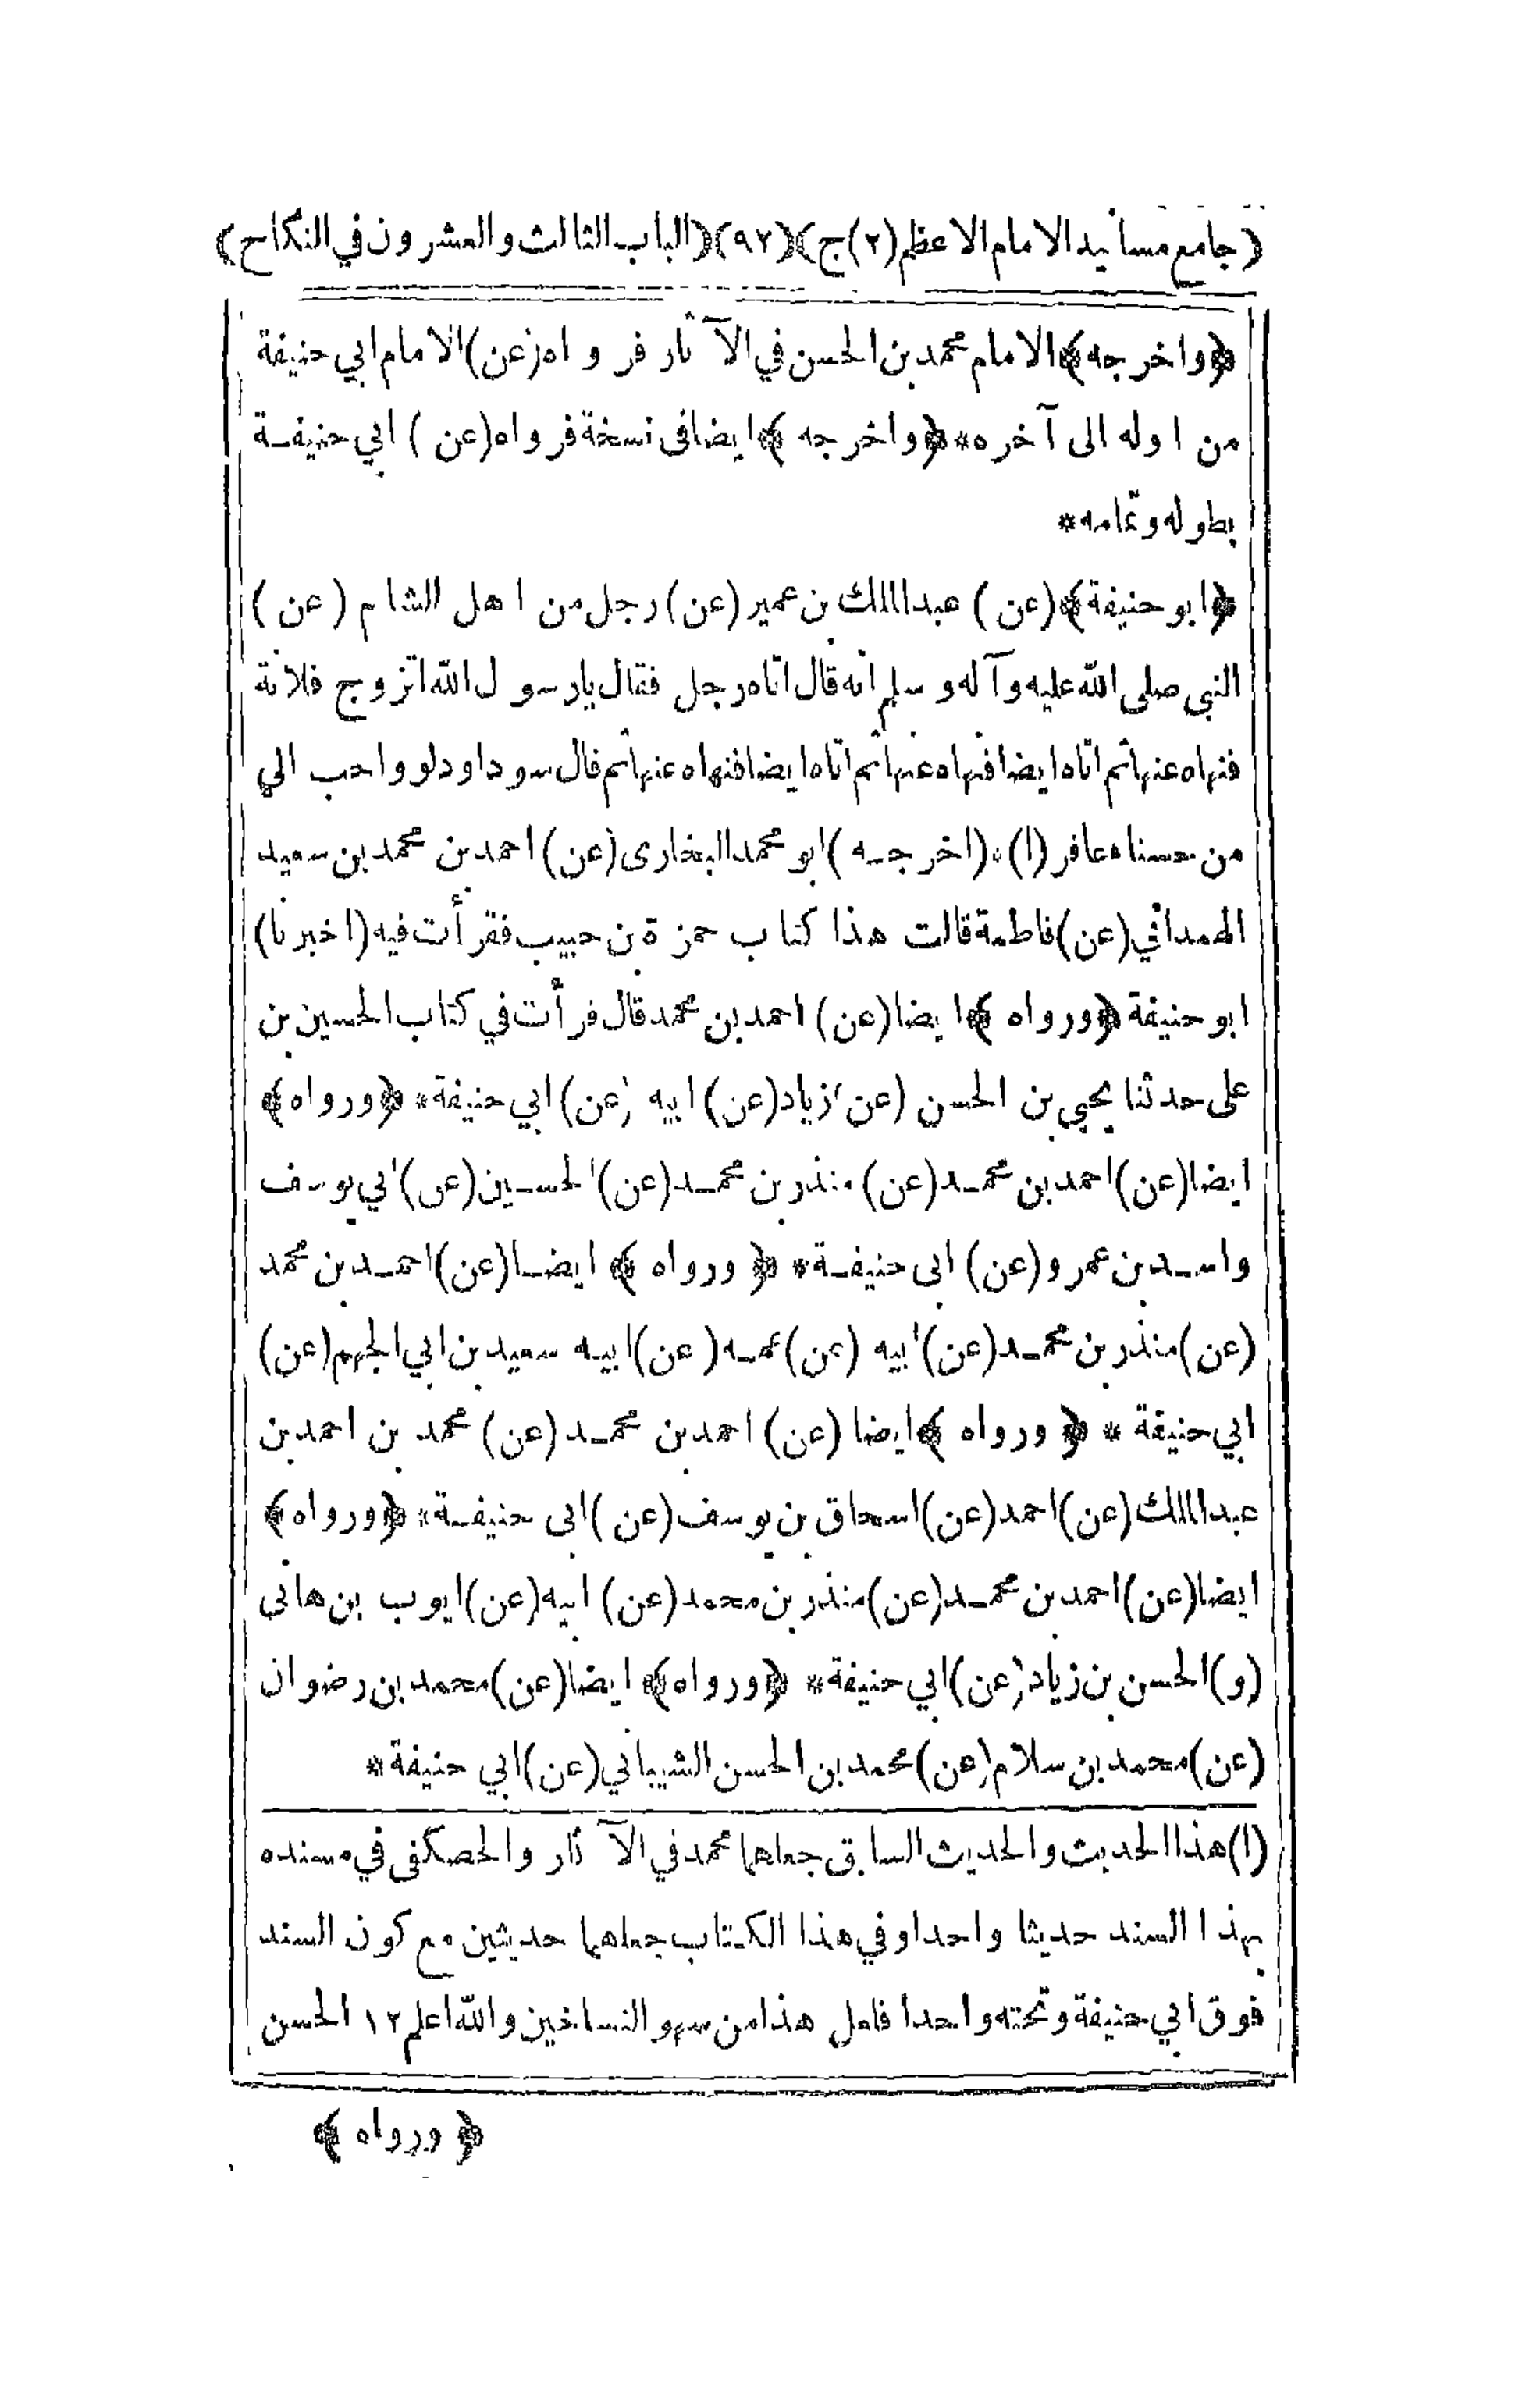 (جامع مسانيد الامام الاعظم (٢) ج) (٩٢) (الباب الثالث والعشرون في النكاح)
﴿واخرجه﴾ الامام محمد بن الحسن في الآثار فرواه (عن) الامام ابي حنيفة
من اوله الى آخره* ﴿واخرجه﴾ ايضا فى نسخة فرواه (عن) ابي حنيفة
بطوله وتمامه*
﴿ابو حنيفة﴾ (عن) عبد الملك بن عمير (عن) رجل من اهل الشام (عن)
النبي صلى الله عليه وآله وسلم انه قال اتاه رجل فقال يا رسول الله اتزوج فلانة
فنهاه عنها ثم اتاه ايضا فنهاه عنها ثم اتاه ايضا فنهاه عنها ثم قال سوداء ولود احب الي
من حسناء عاقر (١)* (اخرجه) ابو محمد البخارى (عن) احمد بن محمد بن سعيد
الهمداني (عن) فاطمة قالت هذا كتاب حمزة بن حبيب فقرأت فيه (اخبرنا)
ابو حنيفة ﴿ورواه﴾ ايضا (عن) احمد بن محمد قال قرأت في كتاب الحسين بن
على حدثنا يحيى بن الحسن (عن) زياد (عن) ابيه (عن) ابي حنيفة* ﴿ورواه﴾
ايضا (عن) احمد بن محمد (عن) منذر بن محمد (عن) الحسين (عن) ابي يوسف
واسد بن عمرو (عن) ابى حنيفة* ﴿ورواه﴾ ايضا (عن) احمد بن محمد
(عن) منذر بن محمد (عن) ابيه (عن) عمه (عن) ابيه سعيد بن ابي الجهم (عن)
ابي حنيفة * ﴿ورواه﴾ ايضا (عن) احمد بن محمد (عن) محمد بن احمد بن
عبد الملك (عن) احمد (عن) اسحاق بن يوسف (عن) ابى حنيفة* ﴿ورواه﴾
ايضا (عن) احمد بن محمد (عن) منذر بن محمد (عن) ابيه (عن) ايوب بن هانى
(و) الحسن بن زياد (عن) ابي حنيفة* ﴿ورواه﴾ ايضا (عن) محمد بن رضوان
(عن) محمد بن سلام (عن) محمد بن الحسن الشيباني (عن) ابي حنيفة*
(١) هذا الحديث والحديث السابق جعلهما محمد في الآثار والحصكفى في مسنده
بهذا السند حديثا واحدا وفي هذا الكتاب جعلهما حديثين مع كون السند
فوق ابي حنيفة وتحته واحدا فلعل هذا من سهو النساخين والله اعلم ١٢ الحسن
﴿ورواه﴾